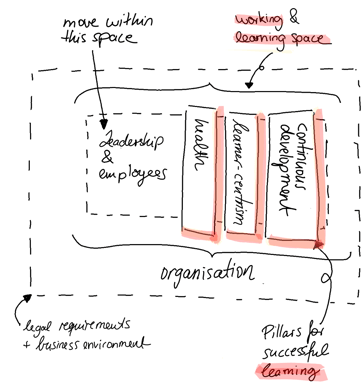 move within
this space
working &
learning space
leadership
&
employees
health
learner-centrism
continuous
development
organisation
legal requirements
+ business environment
Pillars for
successful
learning